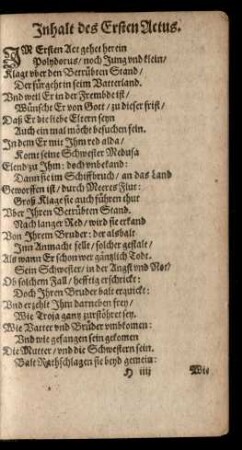 Inhalt des Ersten Actus.
IM Ersten Act gehet herein
Polydorus / noch Jung vnd klein /
Klagt vber den Betrübten Stand /
Der fürgeht in seim Vatterland.
Vnd weil Er in der Frembde ist /
Wünscht Er von Gott / zu dieser frist /
Daß Er die liebe Eltern seyn
Auch ein mal möcht besuchen fein.
In dem Er mit Ihm red alda /
Komt seine Schwester Medusa
Elend zu Ihm: doch vnbekand:
Dann sie im Schiffbruch / an das Land
Geworffen ist / durch Meeres Flut:
Groß Klage sie auch führen thut
Vber Ihren Betrübten Stand.
Nach langer Red / wird sie erkand
Von Ihrem Bruder: der alsbalt
Inn Anmacht felle / solcher gestalt /
Als wann Er schon wer gäntzlich Todt.
Sein Schwester / in der Angst vnd Not /
Ob solchem Fall / hefftig erschrickt:
Doch Ihren Bruder balt erquickt:
Vnd erzehlt Ihm darneben frey /
Wie Troja gantz zurstöhret sey.
Wie Vatter vnd Brüder vmbkomen:
Vnd wie gefangen sein gekomen
Die Mutter / vnd die Schwestern sein.
Balt Rathschlagen sie beyd gemein:
H iiij Wie